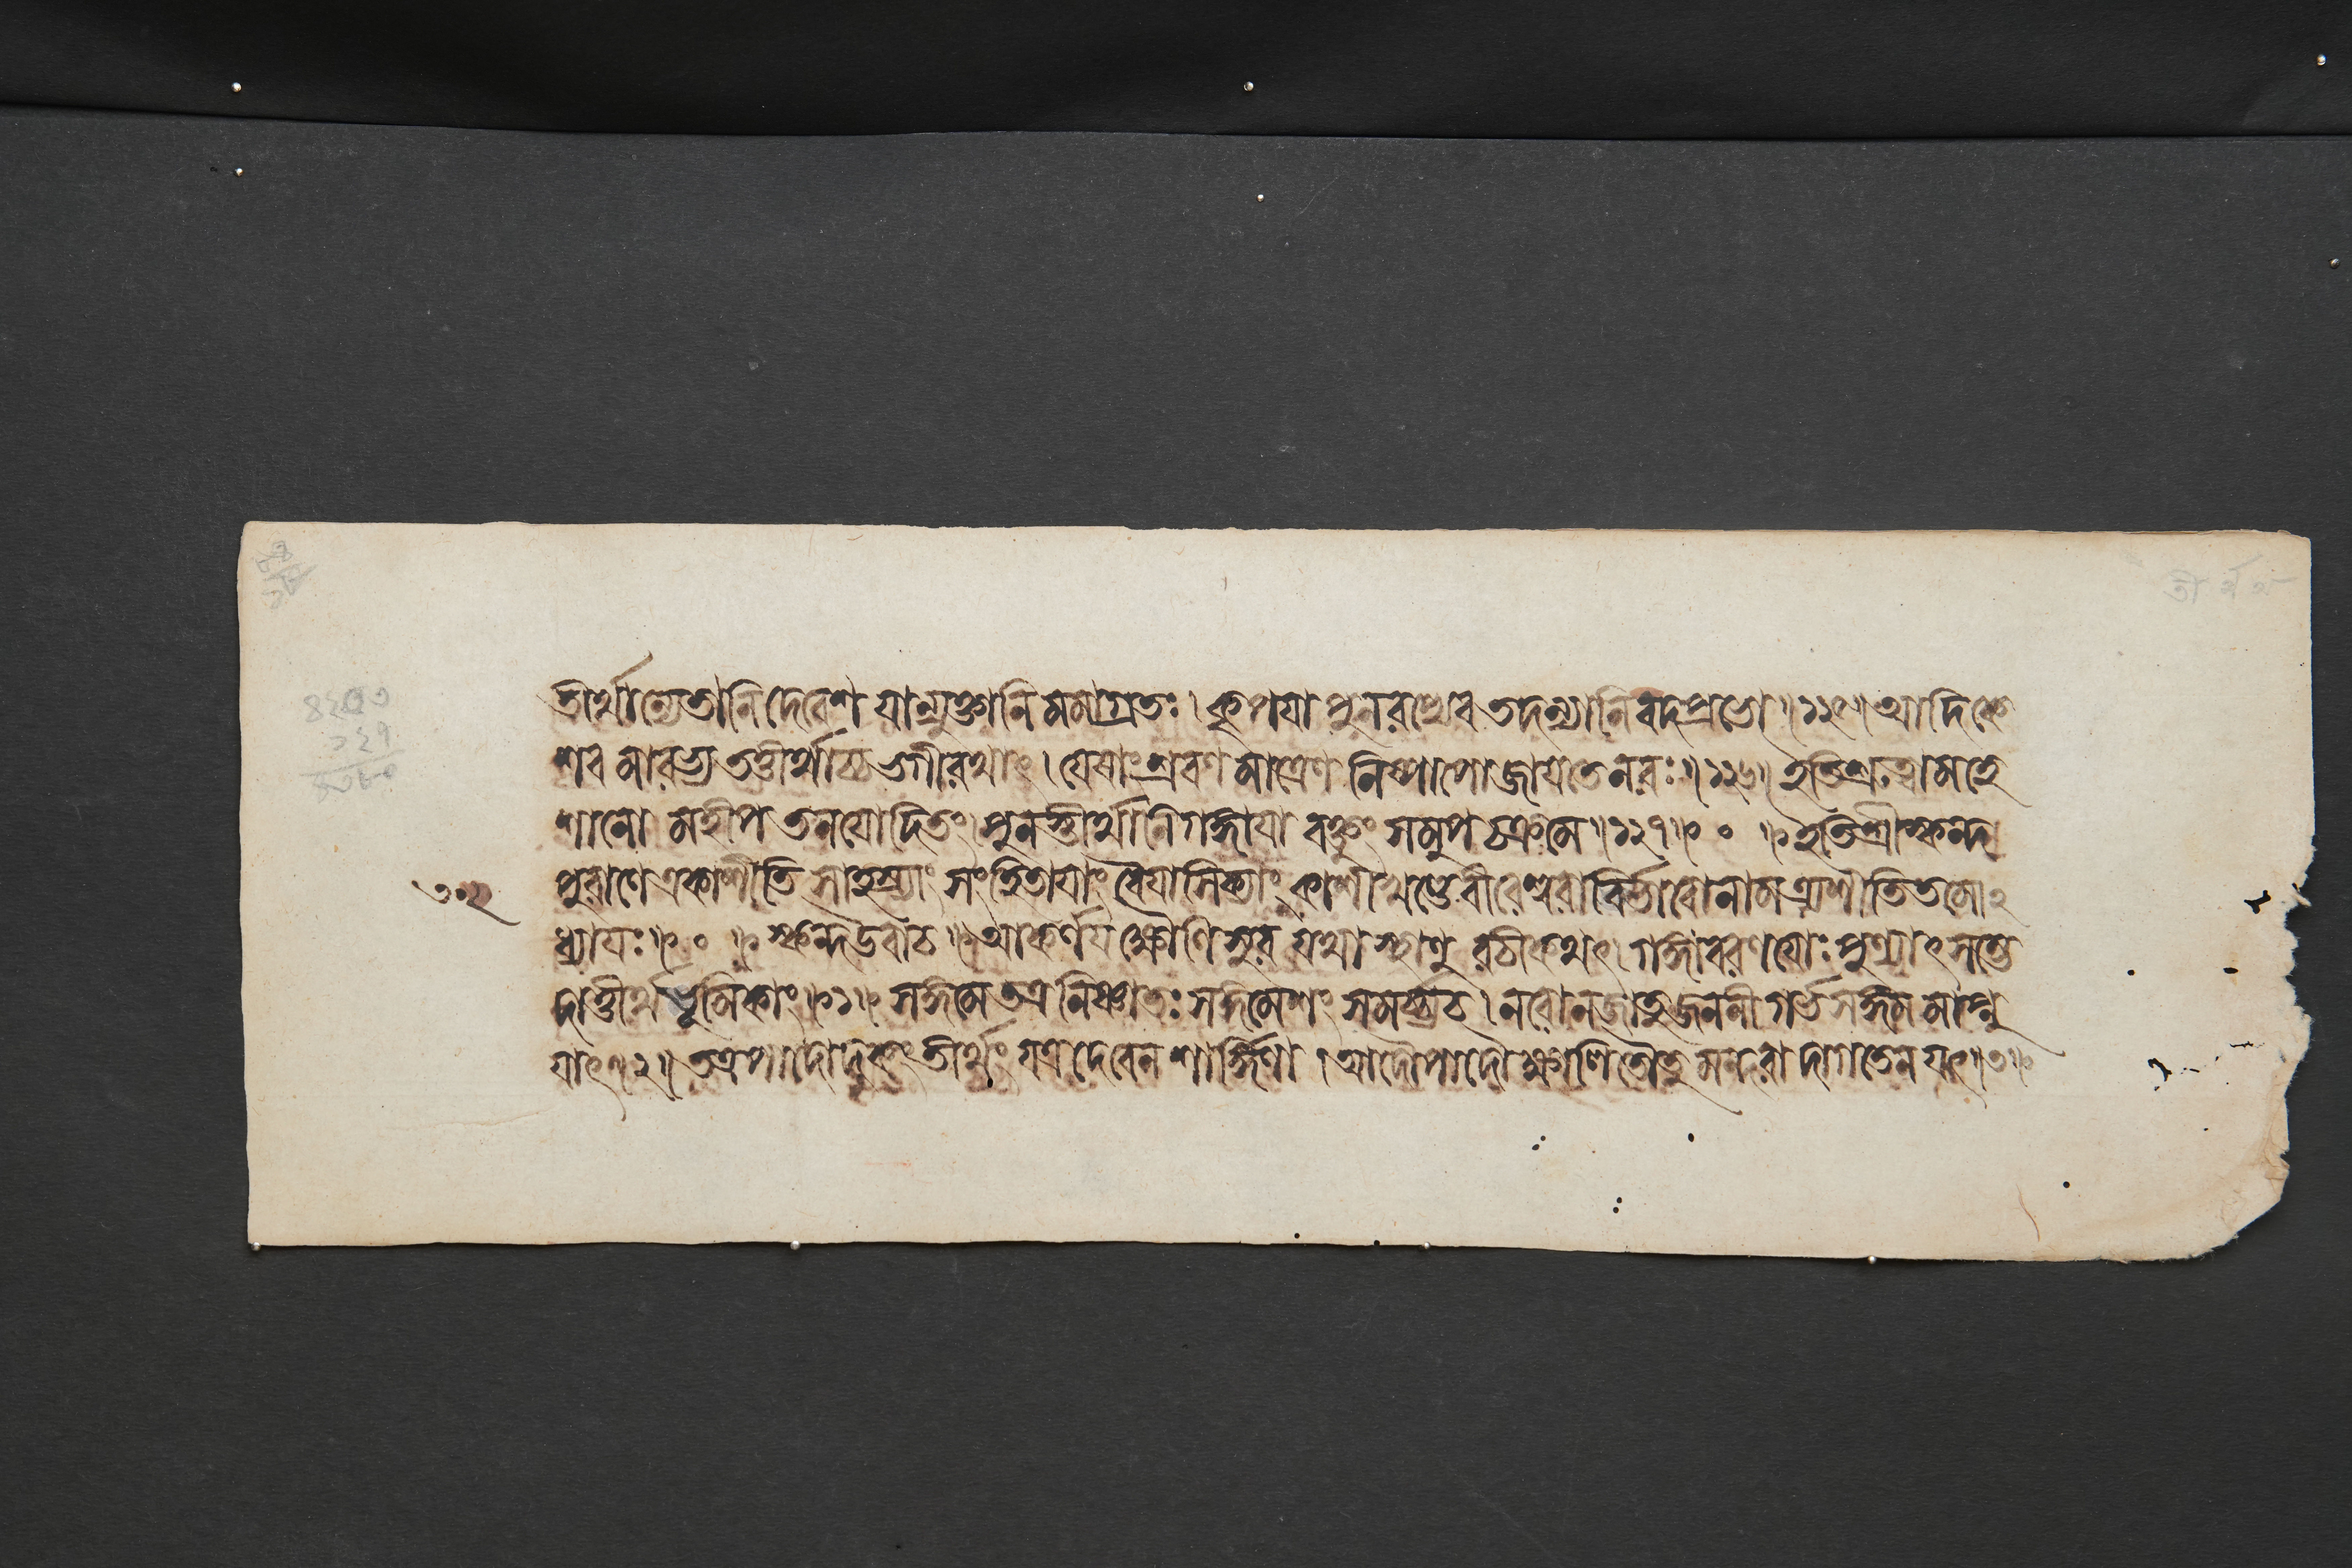 তীর্থান্যেতানি দেবেশ যান্যুক্তানি মমাগ্রতঃ। কৃপযা পুনরপ্যেব তদন্যানি বদপ্রভো॥১২৫॥ আদিকে
শব মারভ্য তত্তীর্থাচ্চ ভগীরথাৎ। যেষাং শ্রবণ মাত্রেণ নিষ্পাপো জাযতে নরঃ॥১২৬॥ ইতি শ্রুত্বা মহে
শানো মহীপ তনযোদিতং। পুনস্তীর্থানি গঙ্গাযা বক্তুং সমুপ চক্রমে॥১২৭॥ ० ॥ইতি শ্রীস্কন্দ
৩০২ পুরাণে একাশীতি সাহস্র্যাং সংহিতাযাং বৈযাসিক্যাং কাশীখণ্ডে বীরেশ্বরা বির্ভাবো নাম ত্র্যশীতিতমো২
ধ্যাযঃ॥ ० ॥স্কন্দউবাচ॥ আকর্ণয ক্ষৌণিসুর যথা স্থাণু রচীকথৎ। গঙ্গা বরণযোঃ পুণ্যাৎ সম্ভে
দাত্তীর্থ ভূমিকাং॥১॥ সঙ্গমে তত্র নিষ্ণাতঃ সঙ্গমেশং সমর্চ্চ্যচ। নরো ন জাতু জননী গর্ভ সঙ্গম মাপ্নু
যাৎ॥২॥ তত্র পাদোদকং তীর্থং যত্র দেবেন শার্ঙ্গিণা। আদৌ পাদৌ ক্ষালিতৌ তু মন্দরা দাগতেন যৎ॥৩॥